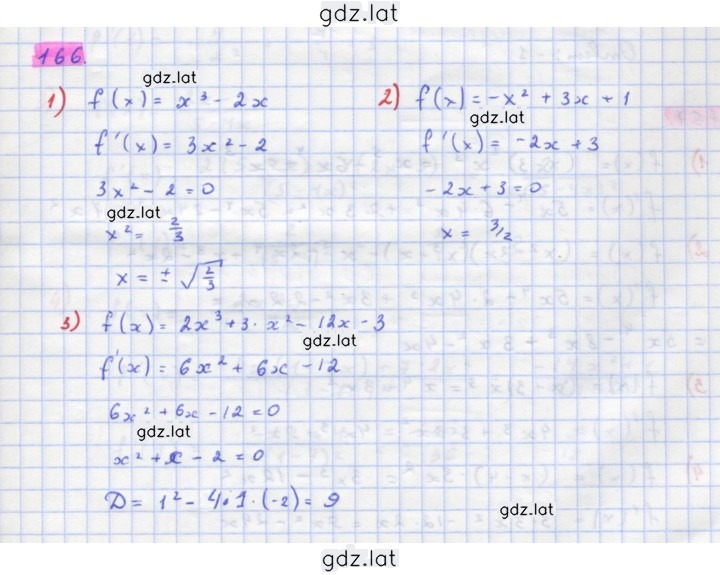 gdz.lat
166.
gdz.lat
1) f(x) = x³ - 2x
f'(x) = 3x² - 2
3x² - 2 = 0
gdz.lat
x² = 2/3
x = ± √(2/3)
2) f(x) = -x² + 3x + 1
gdz.lat
f'(x) = -2x + 3
-2x + 3 = 0
x = 3/2
3) f(x) = 2x³ + 3 · x² - 12x - 3
gdz.lat
f'(x) = 6x² + 6x - 12
6x² + 6x - 12 = 0
gdz.lat
x² + x - 2 = 0
D = 1² - 4 · 1 · (-2) = 9
gdz.lat
gdz.lat